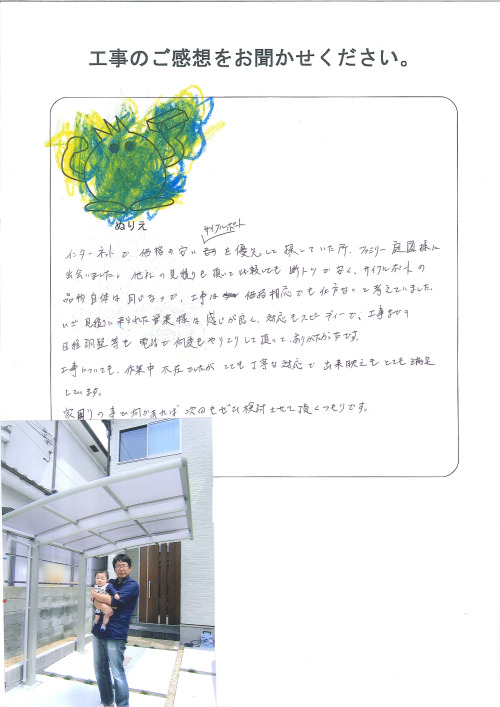 工事のご感想をお聞かせください。
ぬりえ
サイクルポート
インターネットで価格の安いを優先して探していた所、ファミリー庭園様に
出会いました。他社の見積りも取って比較しても断トツで安く、サイクルポートの
品物自体は同じなので、工事は価格相応でも仕方ないと考えていました。
いざ見積に来られた営業様は感じが良く、対応もスピーディーで、工事までの
日程調整等も電話で何度もやりとりして頂いて、ありがたかったです。
工事についても、作業中不在でしたがとても丁寧な対応で出来映えもとても満足
しています。
家周りの事で何かあれば次回もぜひ検討させて頂くつもりです。